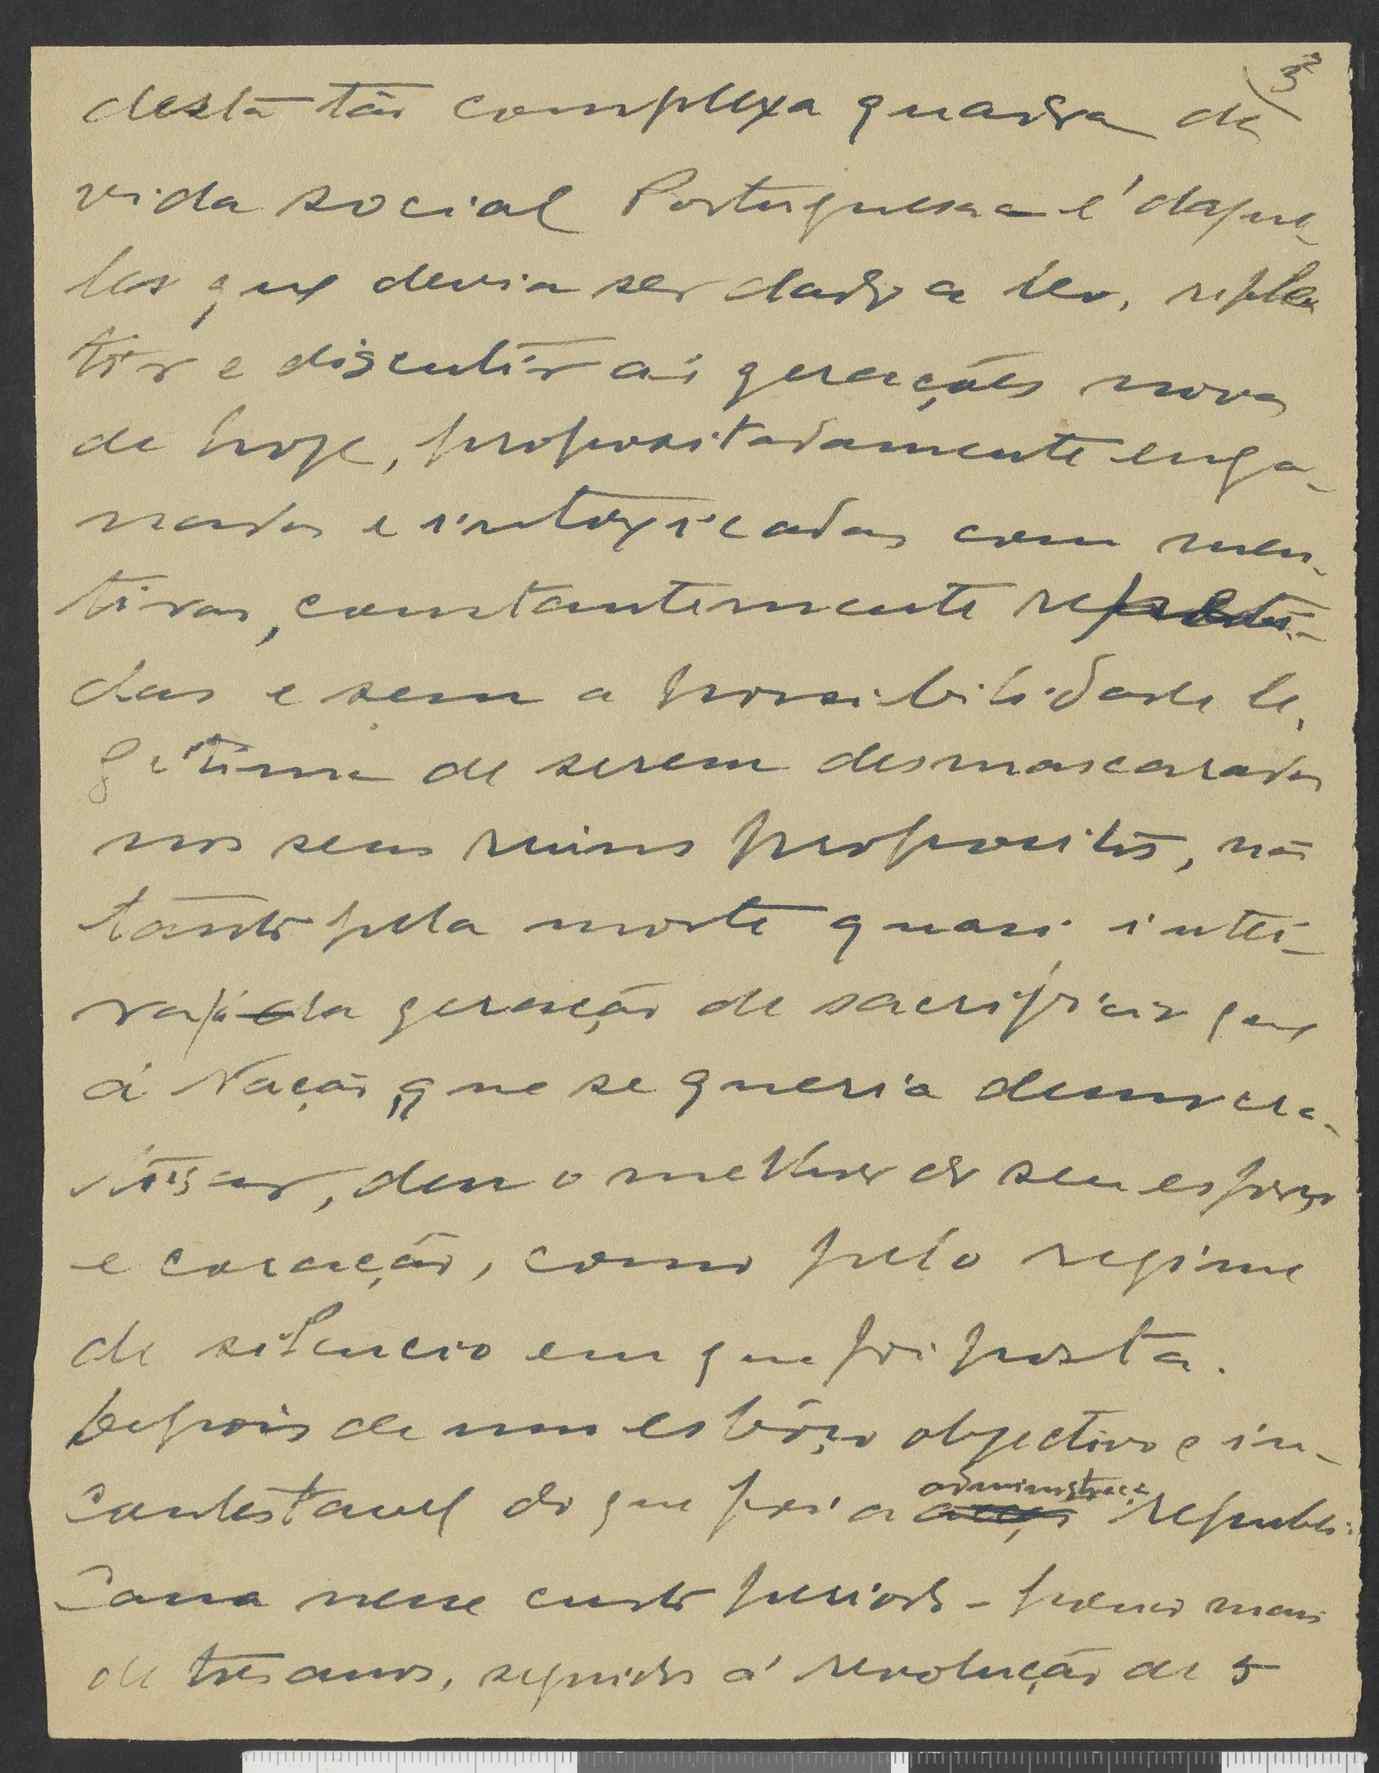 3
desta tão complexa quadra da
vida social Portuguesa - é daque-
les que devia ser dado a ler, reflec
tir e discutir ás gerações novas
de hoje, propositadamente enga-
nadas e intoxicadas com men-
tiras, constantemente repeti-
das e sem a possibilidade le-
gitima de serem desmascaradas
nos seus ruins propositos, não
tanto pela morte quasi intei-
ra da geração de sacrificio que
á Nação, que se queria democra-
tisar, deu o melhor do seu esforço
e coração, como pelo regime
de silencio em que foi posta.
Depois de um esbôço objectivo e in-
contestavel do que foi a administraçã republi-
cana nesse curto periodo - pouco mais
de tres anos, seguidos á revolução de 5